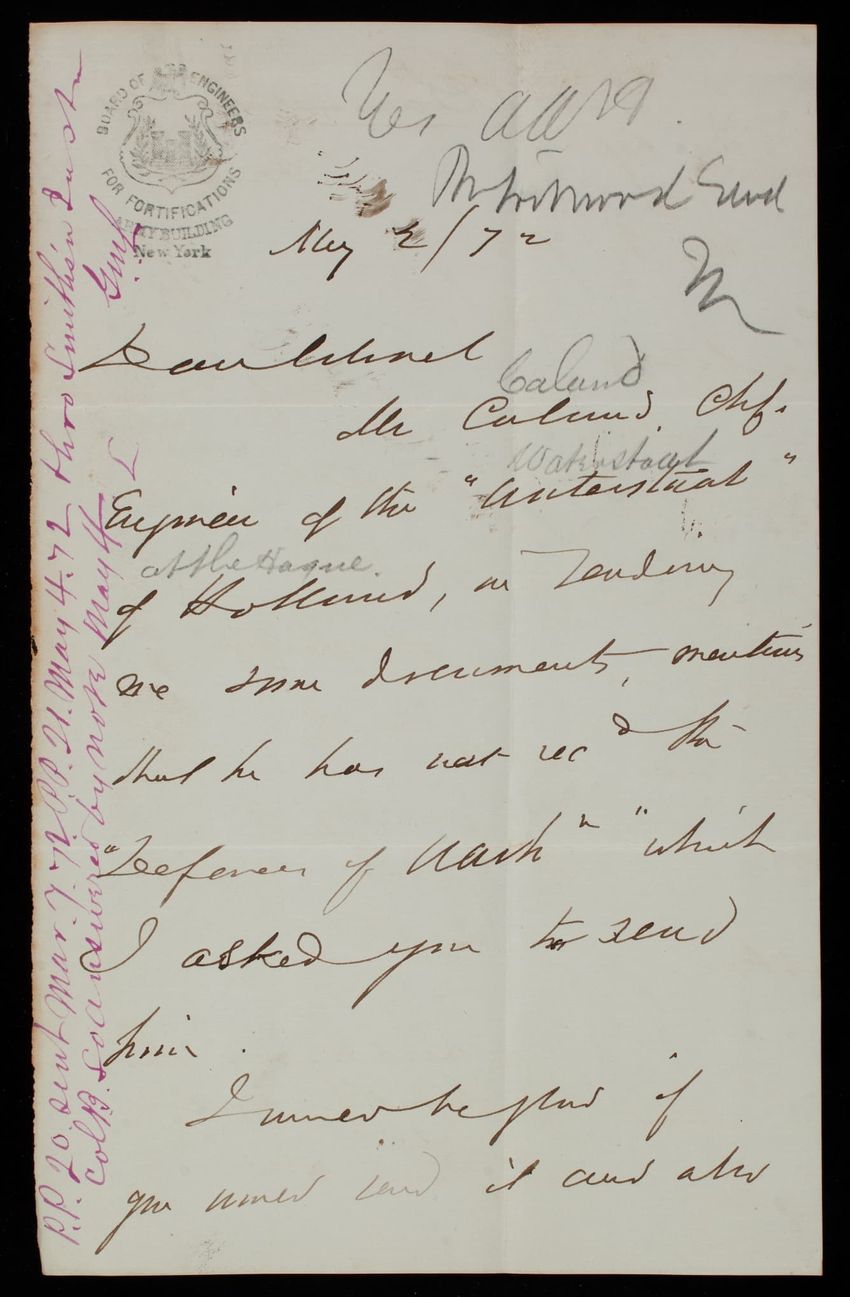 BOARD OF ENGINEERS
FOR FORTIFICATIONS
ARMY BUILDING
New York
Yes
May 2/72
Dear Colonel
Caland
Mr Caland, Chf.
Waterstaat
Engineer of the "Waterstaat"
at the Hague.
of Holland, in sending
me some documents, mentions
that he has not rec'd the
"Defences of Wash" " which
I asked you to send
him.
I would be glad if
you would send it and also
P.P. 20. sent Mar. 7. 72. P.P. 21. May 4. 72 thro Smithsn Instn
Col B. so answered by note May 4